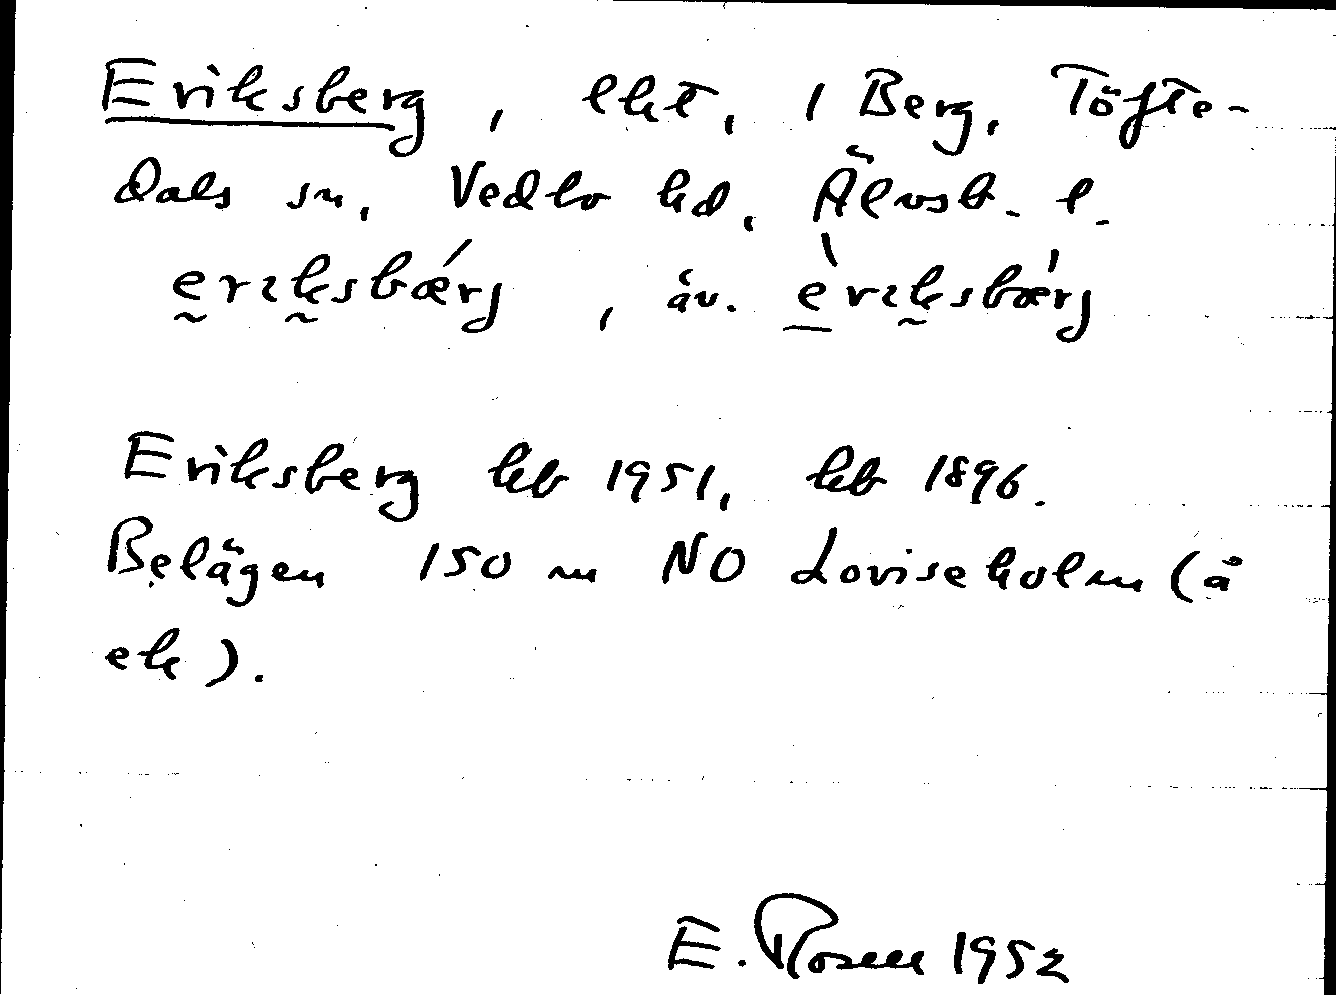 Eriksberg, lht, 1 Berg, Töfte-
dals sn, Vedbo hd, Älvsb. l.
erıksbǽrj, äv. èrıksbæ̀rj
Eriksberg kb 1951, kb 1896.
Belägen 150 m NO Loviseholm (å
ek).
E. Rosen 1952